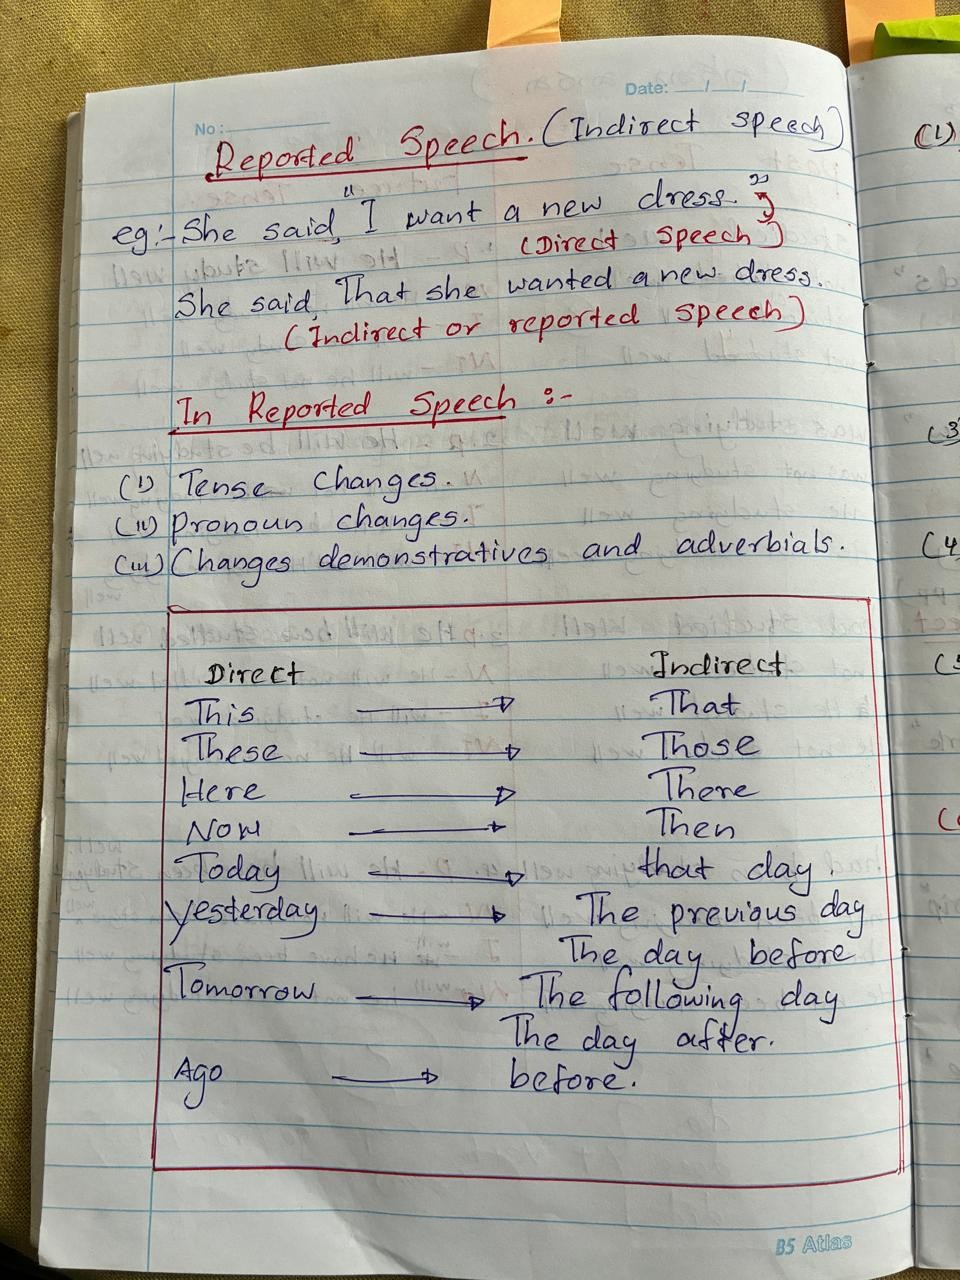 Date: __/__/__
No :
Reported Speech. (Indirect speech)
eg:- She said, "I want a new dress."
(Direct Speech)
She said, That she wanted a new dress.
(Indirect or reported speech)
In Reported Speech :-
(i) Tense changes.
(ii) Pronoun changes.
(iii) Changes demonstratives and adverbials.
Direct Indirect
This → That
These → Those
Here → There
Now → Then
Today → that day.
Yesterday → The previous day
The day before
Tomorrow → The following day
The day after.
Ago → before.
B5 Atlas
(1)
(3)
(4)
(5